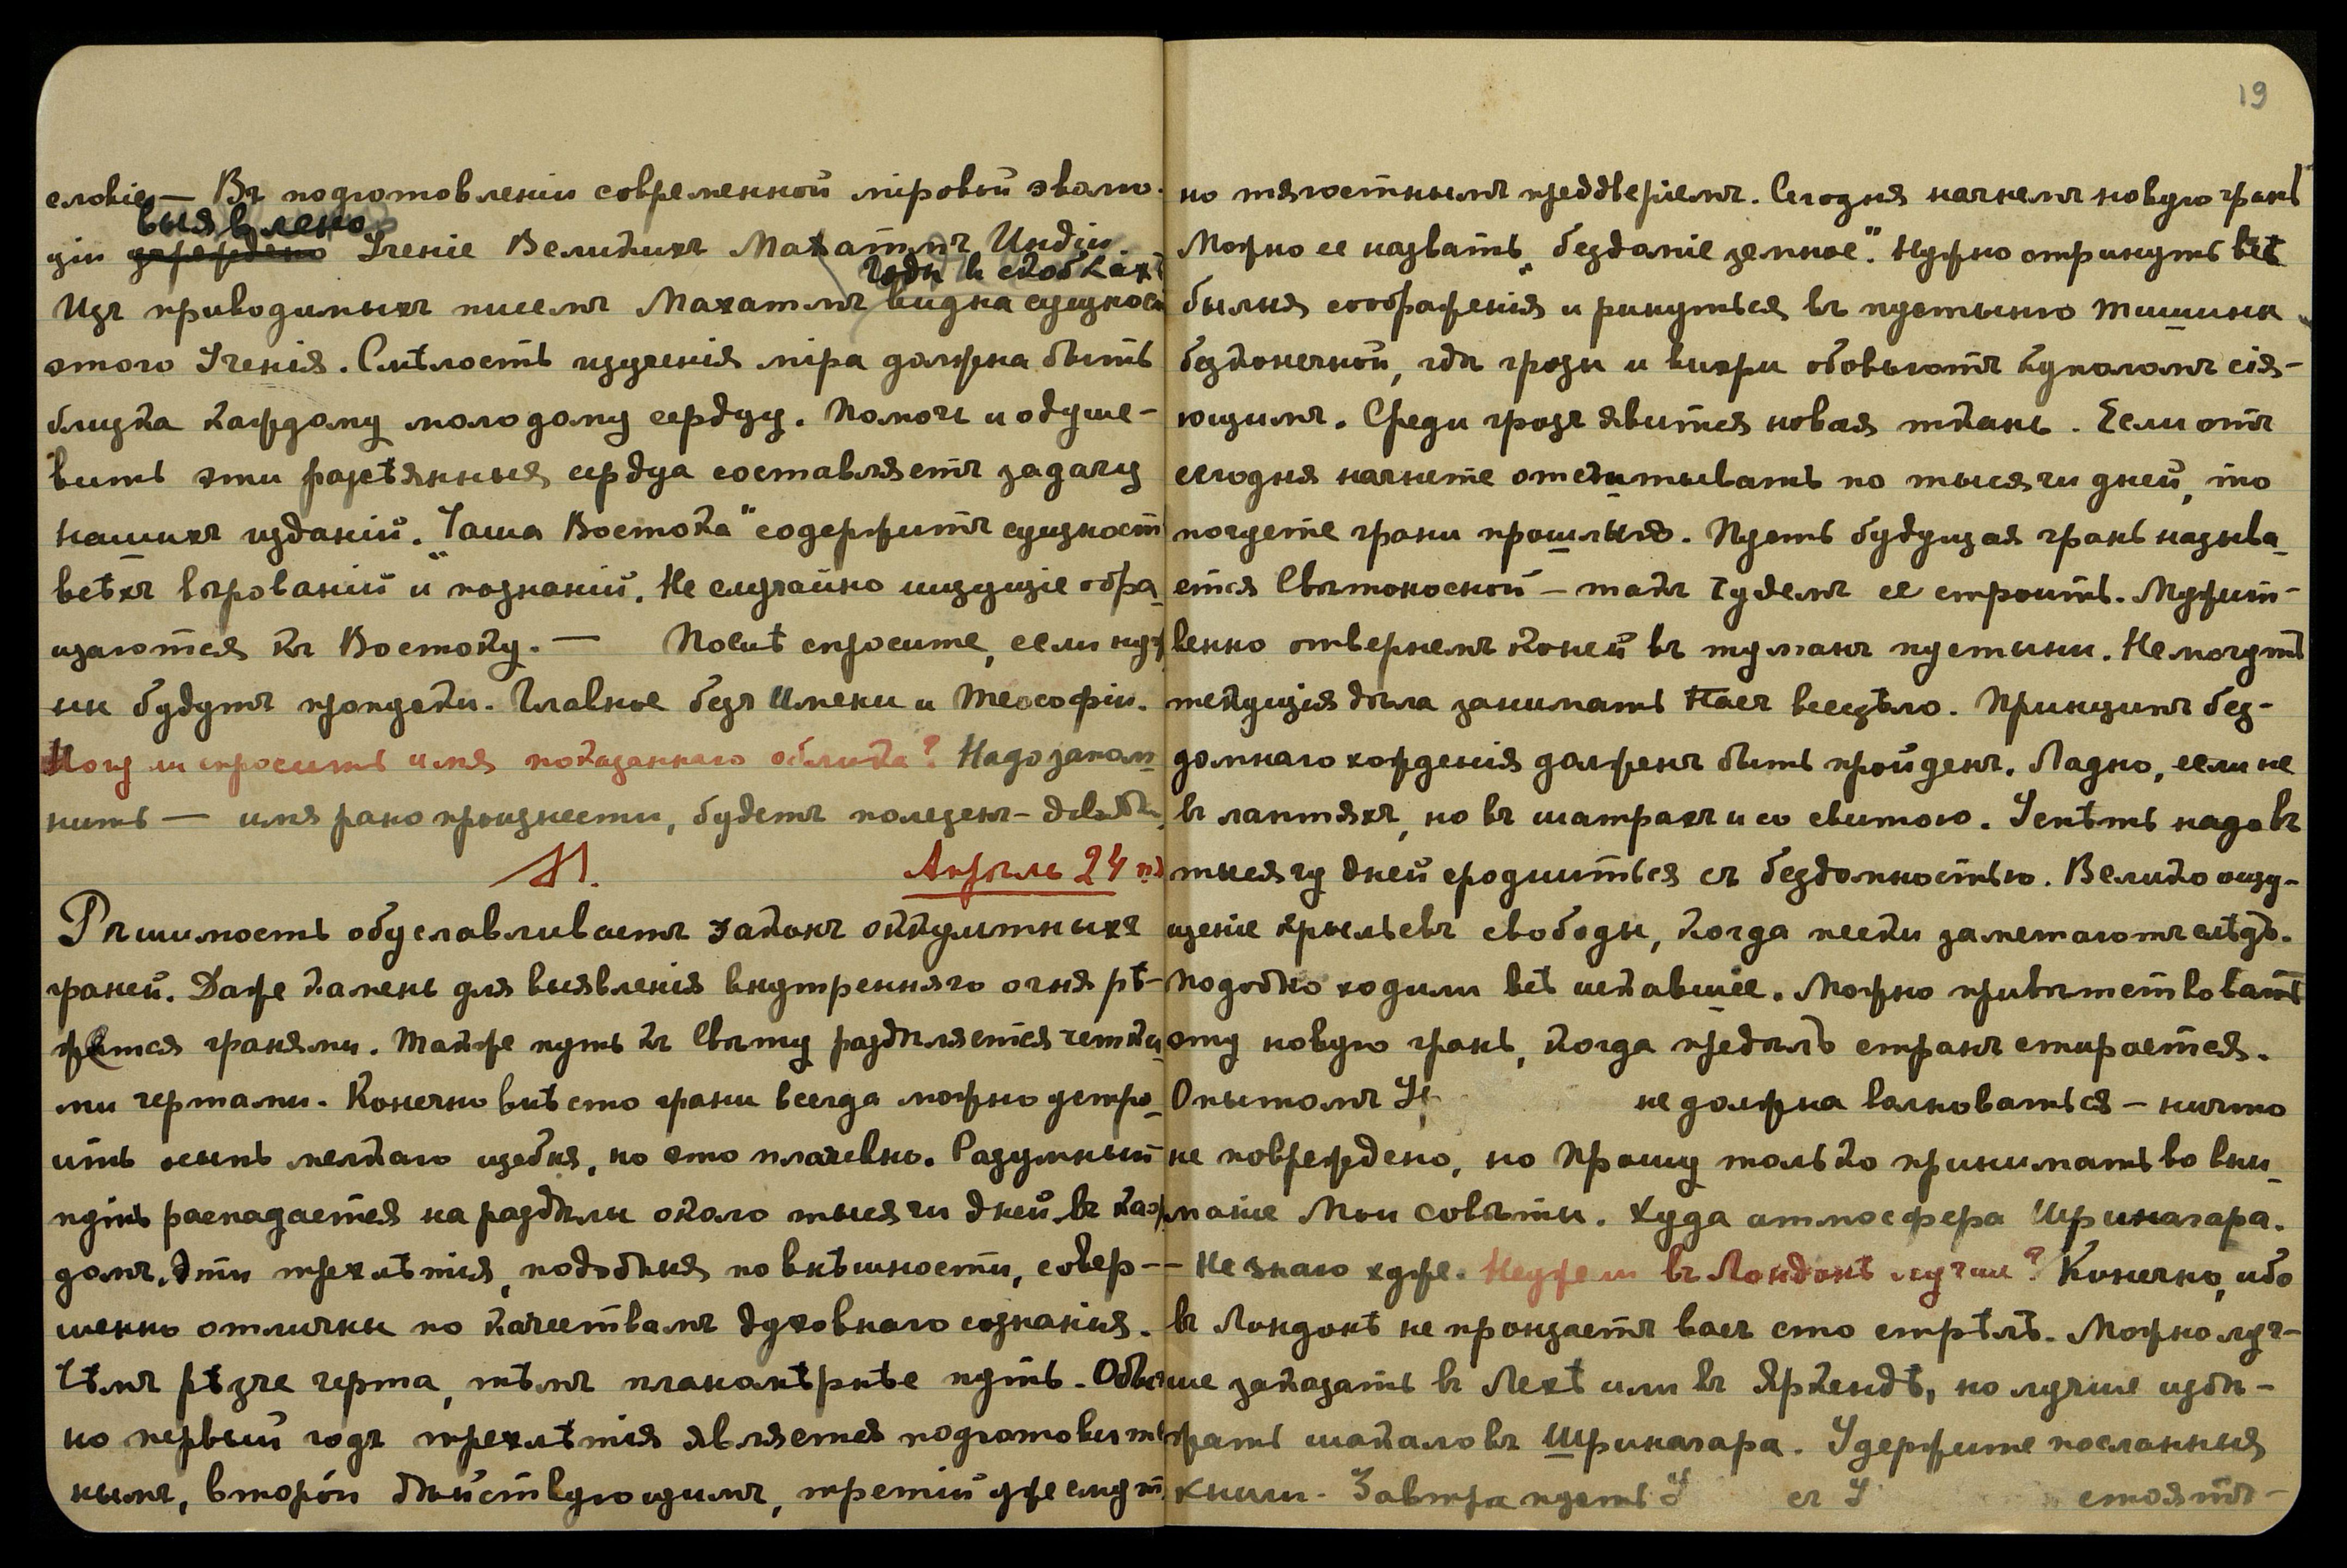 словіе — Въ подготовленіи современной міровой эволю-
выявлено
ціи учреждено Ученіе Великихъ Махатмъ Индіи.
годы въ скобкахъ
Изъ приводимыхъ писемъ Махатмъ видна сущность
этого Ученія. Смѣлость изученія міра должна быть
близка каждому молодому сердцу. Помочь и одуше-
вить эти разсѣянныя сердца составляетъ задачу
нашихъ изданій. „Чаша Востока" содержитъ сущность
всѣхъ вѣрованій и познаній. Не случайно ищущіе обра-
щаются къ Востоку. — Послѣ спросите, если нуж-
ны будутъ пропуски. Главное безъ Имени и Теософіи.
Могу ли спросить имя показаннаго облика? Надо запом-
нить — имя рано произнести, будетъ полезенъ-
М. Апрѣль 24
Рѣшимость обуславливаетъ законъ оккультныхъ
граней. Даже камень для выявленія внутренняго огня рѣ-
жется гранями. Также путь къ Свѣту раздѣляется четки-
ми чертами. Конечно вмѣсто грани всегда можно устро-
ить осыпь мелкаго щебня, но это плачевно. Разумный
путь распадается на раздѣлы около тысячи дней въ каж-
домъ. Эти трехлѣтія, подобныя по внѣшности, совер-
шенно отличны по качествамъ духовнаго сознанія.
Чѣмъ рѣзче черта, тѣмъ планомѣрнѣе путь. Обыч-
но первый годъ трехлѣтія является подготовитель-
нымъ, второй дѣйствующимъ, третій уже смут-
19
но тягостнымъ преддверіемъ. Сегодня начнемъ новую грань
Можно ее назвать „бездоміе земное". Нужно отринуть всѣ
былыя соображенія и ринуться въ пустыню тишины
безконечной, гдѣ грозы и вихри обовьютъ куполомъ сія-
ющимъ. Среди грозъ явится новая ткань. Если отъ
сегодня начнете отсчитывать по тысячи дней, то
почуете грани прошлыя. Пусть будущая грань называ-
ется Свѣтоносной — такъ Чуделъ ее строить. Мужест-
венно отвернемъ коней въ туманъ пустыни. Не могутъ
текущія дѣла занимать Насъ всецѣло. Принципъ без-
домнаго хожденія долженъ быть пройденъ. Ладно, если не
въ лаптяхъ, но въ шатрахъ и со свитою. Успѣть надо въ
тысячу дней сродниться съ бездомностью. Велико ощу-
щеніе крыльевъ свободы, когда пески заметаютъ слѣдъ.
Подобно ходили всѣ искавшіе. Можно привѣтствовать
эту новую грань, когда предѣлъ странъ стирается.
Опытомъ У. не должна волноваться — ничто
не повреждено, но Прошу только принимать во вни-
маніе Мои совѣты. Худа атмосфера Шринагара.
— Не знаю хуже. Неужели въ Лондонѣ лучше? Конечно, ибо
въ Лондонѣ не пронзаетъ васъ сто стрѣлъ. Можно луч-
ше заказать въ Лехѣ или въ Яркендѣ, но лучше избѣ-
гать шакаловъ Шринагара. Удержите посланныя
книги. Завтра пусть У съ У стоятъ-